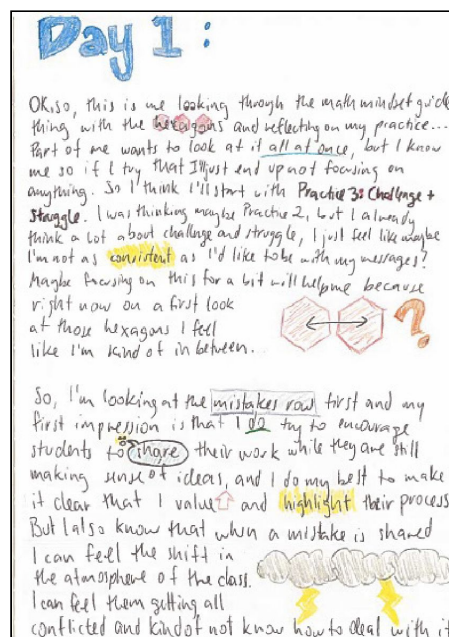 Day 1:
OK, so, this is me looking through the math mindset guide
thing with the hexagons and reflecting on my practice...
Part of me wants to look at it all at once, but I know
me so if I try that I'll just end up not focusing on
anything. So I think I'll start with Practice 3: Challenge +
Struggle. I was thinking maybe Practice 2, but I already
think a lot about challenge and struggle, I just feel like maybe
I'm not as consistent as I'd like to be with my messages?
Maybe focusing on this for a bit will help me because
right now on a first look
at those hexagons I feel
like I'm kind of in between.
?
So, I'm looking at the mistakes row first and my
first impression is that I do try to encourage
students to share their work while they are still
making sense of ideas, and I do my best to make
it clear that I value and highlight their process
But I also know that when a mistake is shared
I can feel the shift in
the atmosphere of the class.
I can feel them getting all
conflicted and kind of not know how to deal with it